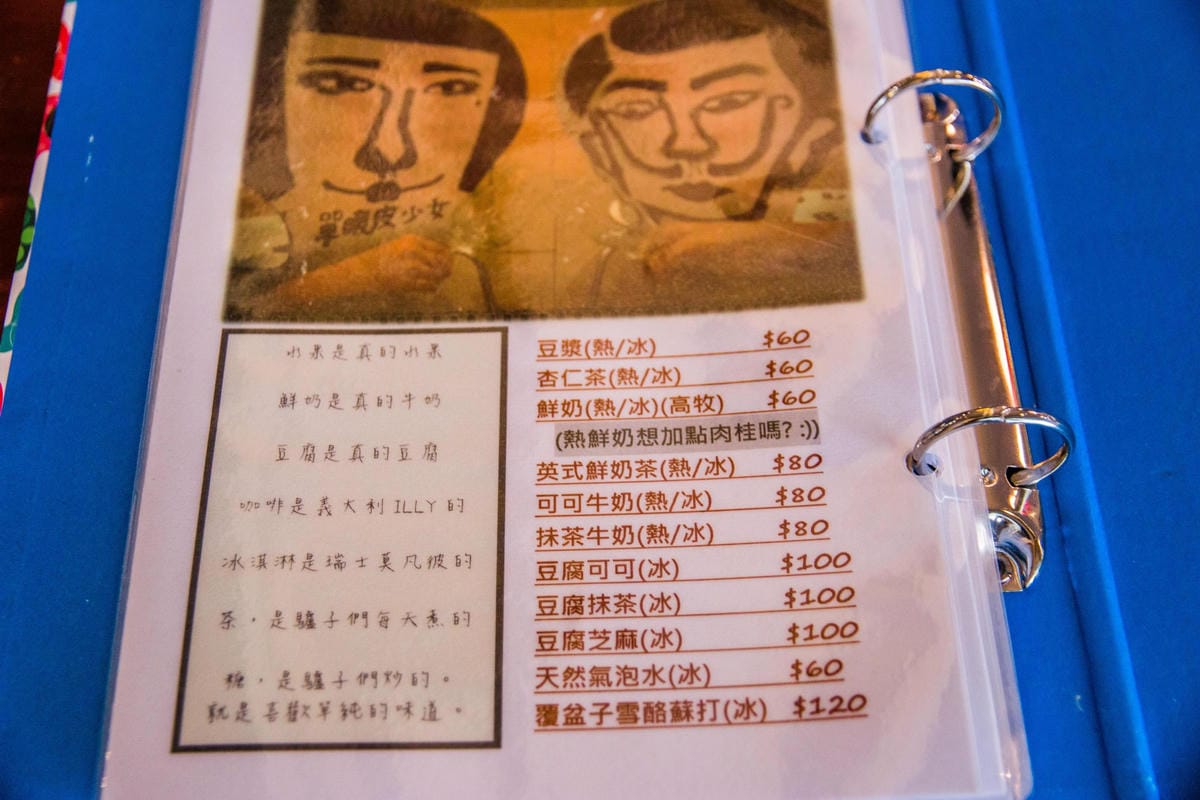 單眼皮少女
水果是真的水果
鮮奶是真的牛奶
豆腐是真的豆腐
咖啡是義大利ILLY的
冰淇淋是瑞士莫凡彼的
茶，是驢子們每天煮的
糖，是驢子們炒的。
就是喜歡單純的味道。
豆漿(熱/冰) $60
杏仁茶(熱/冰) $60
鮮奶(熱/冰)(高牧) $60
(熱鮮奶想加點肉桂嗎? :))
英式鮮奶茶(熱/冰) $80
可可牛奶(熱/冰) $80
抹茶牛奶(熱/冰) $80
豆腐可可(冰) $100
豆腐抹茶(冰) $100
豆腐芝麻(冰) $100
天然氣泡水(冰) $60
覆盆子雪酪蘇打(冰) $120